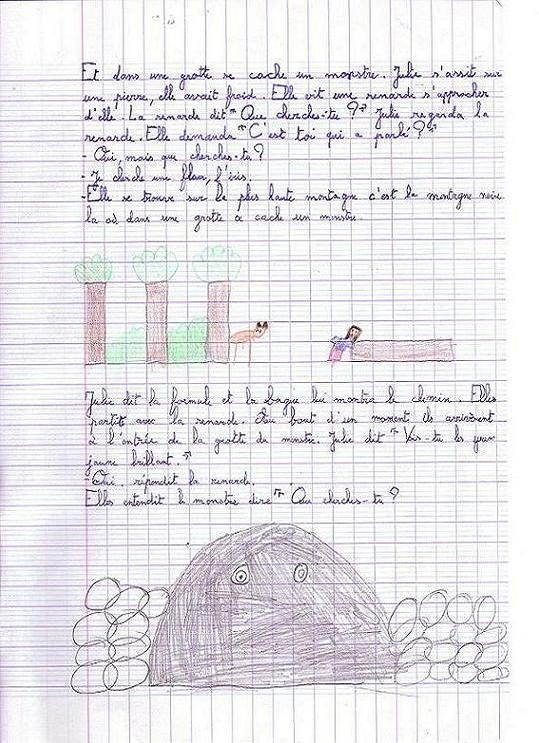 Et dans une grotte se cache un monstre. Julie s'assit sur
une pierre, elle avait froid. Elle vit une renarde s'approcher
d'elle. La renarde dit " Que cherches-tu ? " Julie regarda la
renarde. Elle demanda " C'est toi qui a parlé ? "
- Oui, mais que cherches-tu ?
- Je cherche une fleur, l'iris.
- Elle se trouve sur la plus haute montagne c'est la montagne noire
la où dans une grotte se cache un monstre.
Julie dit la formule et la bague lui montra le chemin. Elles
partit avec la renarde. Au bout d'un moment ils arrivèrent
à l'entrée de la grotte du monstre. Julie dit " Vois-tu les yeux
jaune brillant. "
- Oui. répondit la renarde.
Elles entendit le monstre dire " Que cherches-tu ?